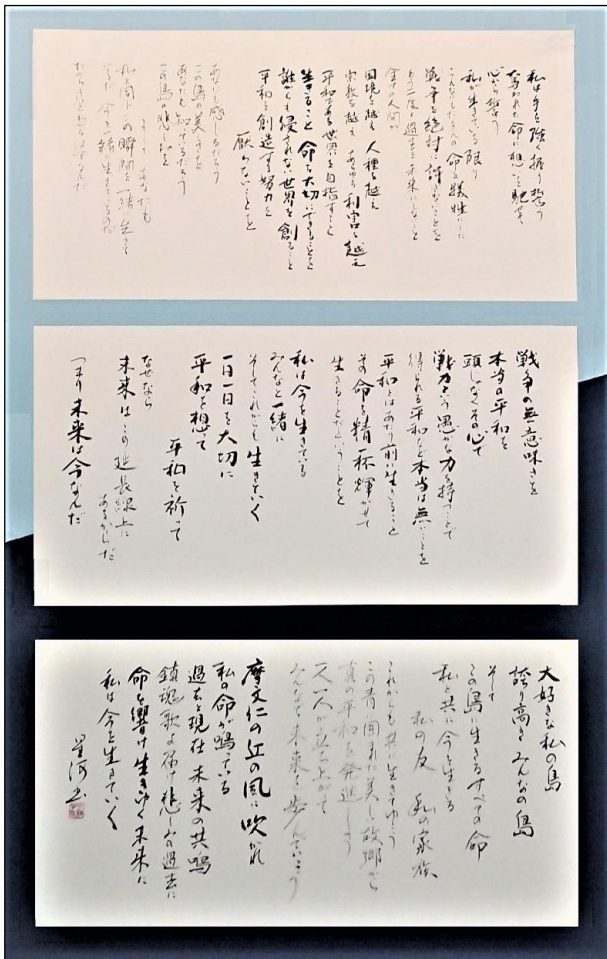 私は手を強く握り誓う
奪われた命に想いを馳せて
心から誓う
私が生きている限り
こんなにもたくさんの命を犠牲にした
戦争を絶対に許さないことを
もう二度と過去を未来にしないこと
全ての人間が
国境を越え 人種を越え
宗教を越え あらゆる利害を越え
平和である世界を目指すこと
生きること 命を大切にできることを
誰からも侵されない世界を創ること
平和を創造する努力を
厭わないことを
あなたも感じるだろう
この島の美しさを
あなたも知っているだろう
この島の悲しみを
そして あなたも
私と同じこの瞬間を一緒に生きて
いるのだ 今を一緒に生きているのだ
だからきっとわかるはずなんだ
戦争の無意味さを
本当の平和を
頭じゃなくその心で
戦力という愚かな力を持つことで
得られる平和など本当は無いことを
平和とはあたり前に生きること
その命を精一杯輝かせて
生きることだということを
私は今を生きている
みんなと一緒に
そしてこれからも生きていく
一日一日を大切に
平和を想って
平和を祈って
なぜなら
未来はこの延長線上に
あるからだ
つまり未来は今なんだ
大好きな私の島
誇り高きみんなの島
そして
この島に生きるすべての命
私と共に今を生きる
私の友 私の家族
これからも共に生きてゆこう
この青に囲まれた美しい故郷から
真の平和を発進しよう
一人一人が立ち上がって
みんなで未来を歩んでいこう
摩文仁の丘の風に吹かれ
私の命が鳴っている
過去と現在 未来の共鳴
鎮魂歌よ届け 悲しみの過去に
命よ響け 生きゆく未来に
私は今を生きていく
星河書